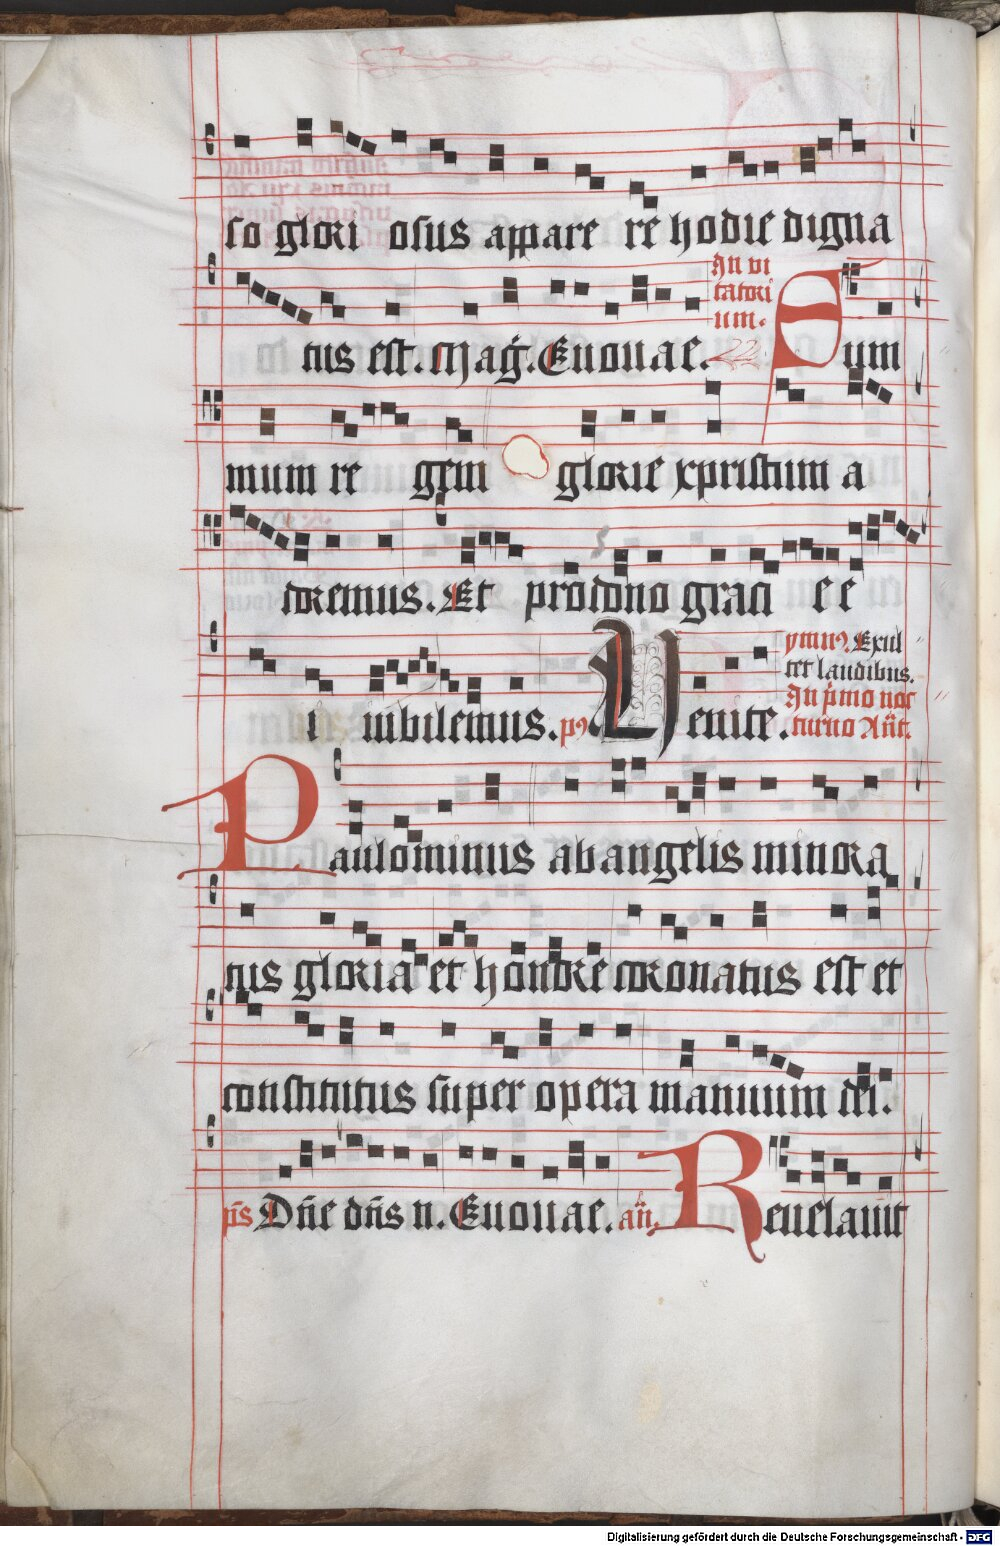 so glori osus appare re hodie digna
An vi
tatori
um.
tus est. Mag̃. Euouae. Sum
mum re gem glorie xpristum a
doremus. Et pro dono graci e e
i iubilemus. ps Uenite.
ymnus. Exul
tet laudibus.
An p̃mo noc
turno Añt.
Paulominus ab angelis minora
tus gloria et honore coronatus est et
constitutus super opera manuum dei.
ps̃ Dñe dñs n. Euouae. añ. Reuelauit
Digitalisierung gefördert durch die Deutsche Forschungsgemeinschaft - DFG